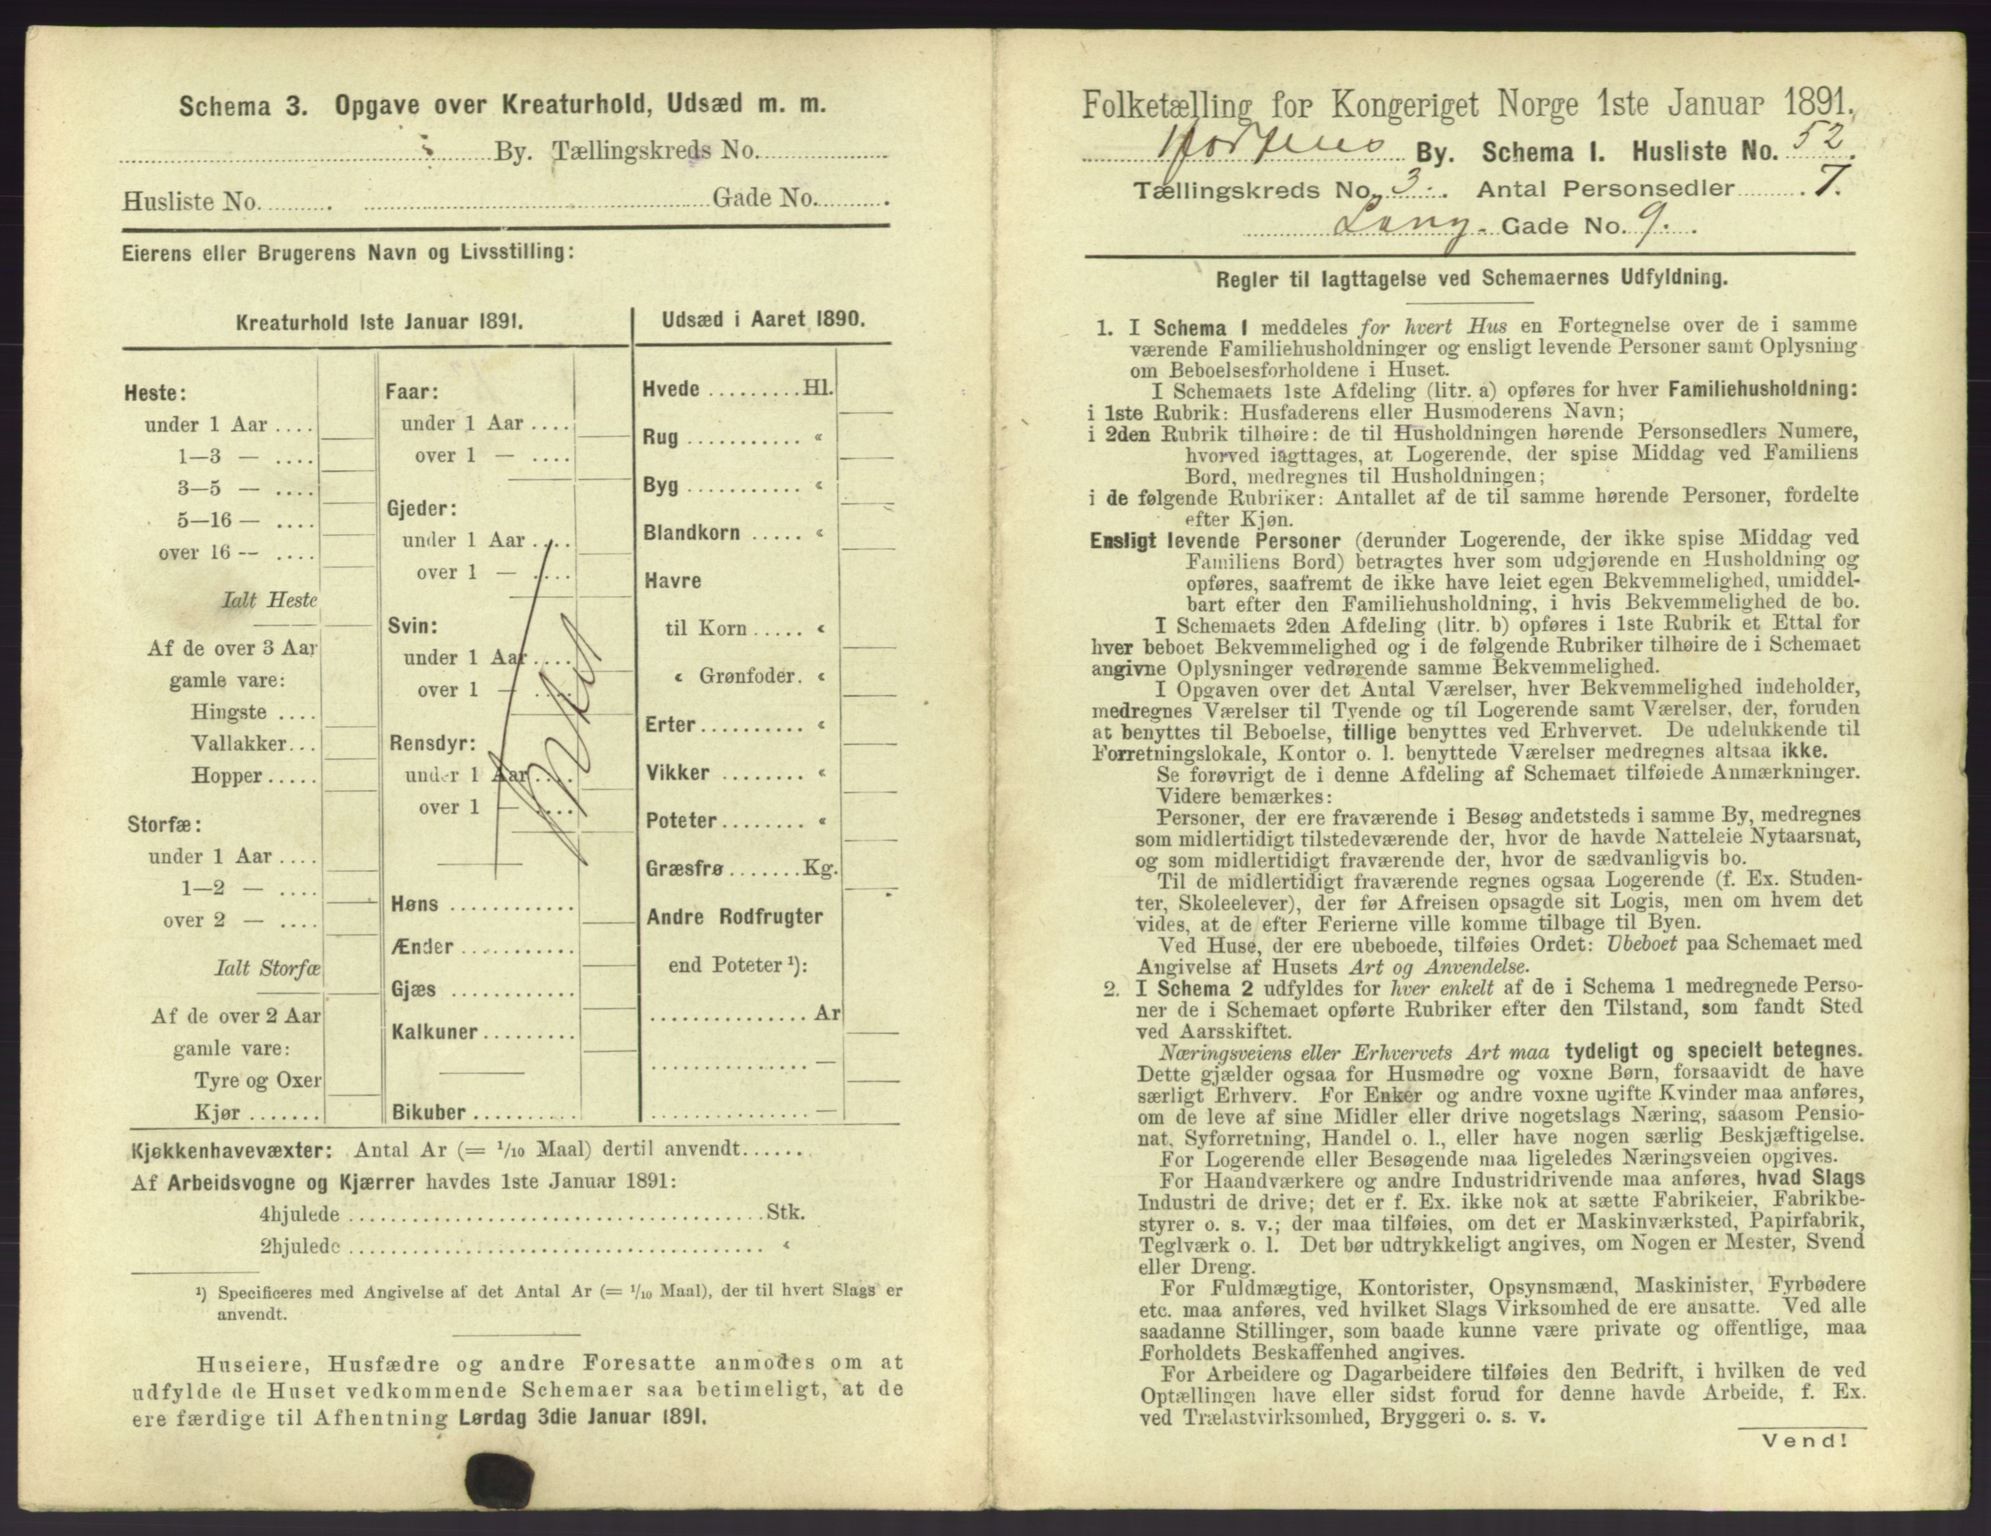 Schema 3. Opgave over Kreaturhold, Udsæd m. m.
By. Tællingskreds No.
Husliste No. Gade No.
Eierens eller Brugerens Navn og Livsstilling:
Kreaturhold 1ste Januar 1891.
Heste:
under 1 Aar ....
1—3 — ....
3—5 — ....
5—16 — ....
over 16 — ....
Ialt Heste
Af de over 3 Aar
gamle vare:
Hingste ....
Vallakker...
Hopper .....
Storfæ:
under 1 Aar ....
1—2 — ....
over 2 — ....
Ialt Storfæ
Af de over 2 Aar
gamle vare:
Tyre og Oxer
Kjør .......
Faar:
under 1 Aar ....
over 1 — ....
Gjeder:
under 1 Aar ....
over 1 — ....
Svin:
under 1 Aar ....
over 1 — ....
Rensdyr:
under 1 Aar ....
over 1 — ....
Høns ............
Ænder ...........
Gjæs ............
Kalkuner .........
Bikuber ..........
Intet
Udsæd i Aaret 1890.
Hvede .........Hl.
Rug ........... «
Byg ........... «
Blandkorn ..... «
Havre
til Korn ..... «
« Grønfoder. «
Erter .......... «
Vikker ........ «
Poteter ........ «
Græsfrø .......Kg.
Andre Rodfrugter
end Poteter ¹):
............... Ar
............... —
............... —
Kjøkkenhavevæxter: Antal Ar (= 1/10 Maal) dertil anvendt......
Af Arbeidsvogne og Kjærrer havdes 1ste Januar 1891:
4hjulede ........................................ Stk.
2hjulede ........................................ «
¹) Specificeres med Angivelse af det Antal Ar (= 1/10 Maal), der til hvert Slags er
anvendt.
Huseiere, Husfædre og andre Foresatte anmodes om at
udfylde de Huset vedkommende Schemaer saa betimeligt, at de
ere færdige til Afhentning Lørdag 3die Januar 1891.
Folketælling for Kongeriget Norge 1ste Januar 1891.
Hortens By. Schema I. Husliste No. 52.
Tællingskreds No. 3. Antal Personsedler 7.
Lang- Gade No. 9.
Regler til Iagttagelse ved Schemaernes Udfyldning.
1. I Schema I meddeles for hvert Hus en Fortegnelse over de i samme
værende Familiehusholdninger og ensligt levende Personer samt Oplysning
om Beboelsesforholdene i Huset.
I Schemaets 1ste Afdeling (litr. a) opføres for hver Familiehusholdning:
i 1ste Rubrik: Husfaderens eller Husmoderens Navn;
i 2den Rubrik tilhøire: de til Husholdningen hørende Personsedlers Numere,
hvorved iagttages, at Logerende, der spise Middag ved Familiens
Bord, medregnes til Husholdningen;
i de følgende Rubriker: Antallet af de til samme hørende Personer, fordelte
efter Kjøn.
Ensligt levende Personer (derunder Logerende, der ikke spise Middag ved
Familiens Bord) betragtes hver som udgjørende en Husholdning og
opføres, saafremt de ikke have leiet egen Bekvemmelighed, umiddel-
bart efter den Familiehusholdning, i hvis Bekvemmelighed de bo.
I Schemaets 2den Afdeling (litr. b) opføres i 1ste Rubrik et Ettal for
hver beboet Bekvemmelighed og i de følgende Rubriker tilhøire de i Schemaet
angivne Oplysninger vedrørende samme Bekvemmelighed.
I Opgaven over det Antal Værelser, hver Bekvemmelighed indeholder,
medregnes Værelser til Tyende og til Logerende samt Værelser, der, foruden
at benyttes til Beboelse, tillige benyttes ved Erhvervet. De udelukkende til
Forretningslokale, Kontor o. l. benyttede Værelser medregnes altsaa ikke.
Se forøvrigt de i denne Afdeling af Schemaet tilføiede Anmærkninger.
Videre bemærkes:
Personer, der ere fraværende i Besøg andetsteds i samme By, medregnes
som midlertidigt tilstedeværende der, hvor de havde Natteleie Nytaarsnat,
og som midlertidigt fraværende der, hvor de sædvanligvis bo.
Til de midlertidigt fraværende regnes ogsaa Logerende (f. Ex. Studen-
ter, Skoleelever), der før Afreisen opsagde sit Logis, men om hvem det
vides, at de efter Ferierne ville komme tilbage til Byen.
Ved Huse, der ere ubeboede, tilføies Ordet: Ubeboet paa Schemaet med
Angivelse af Husets Art og Anvendelse.
2. I Schema 2 udfyldes for hver enkelt af de i Schema 1 medregnede Perso-
ner de i Schemaet opførte Rubriker efter den Tilstand, som fandt Sted
ved Aarsskiftet.
Næringsveiens eller Erhvervets Art maa tydeligt og specielt betegnes.
Dette gjælder ogsaa for Husmødre og voxne Børn, forsaavidt de have
særligt Erhverv. For Enker og andre voxne ugifte Kvinder maa anføres,
om de leve af sine Midler eller drive nogetslags Næring, saasom Pensio-
nat, Syforretning, Handel o. l., eller have nogen særlig Beskjæftigelse.
For Logerende eller Besøgende maa ligeledes Næringsveien opgives.
For Haandværkere og andre Industridrivende maa anføres, hvad Slags
Industri de drive; det er f. Ex. ikke nok at sætte Fabrikeier, Fabrikbe-
styrer o. s. v.; der maa tilføies, om det er Maskinværksted, Papirfabrik,
Teglværk o. l. Det bør udtrykkeligt angives, om Nogen er Mester, Svend
eller Dreng.
For Fuldmægtige, Kontorister, Opsynsmænd, Maskinister, Fyrbødere
etc. maa anføres, ved hvilket Slags Virksomhed de ere ansatte. Ved alle
saadanne Stillinger, som baade kunne være private og offentlige, maa
Forholdets Beskaffenhed angives.
For Arbeidere og Dagarbeidere tilføies den Bedrift, i hvilken de ved
Optællingen have eller sidst forud for denne havde Arbeide, f. Ex.
ved Trælastvirksomhed, Bryggeri o. s. v.
Vend!